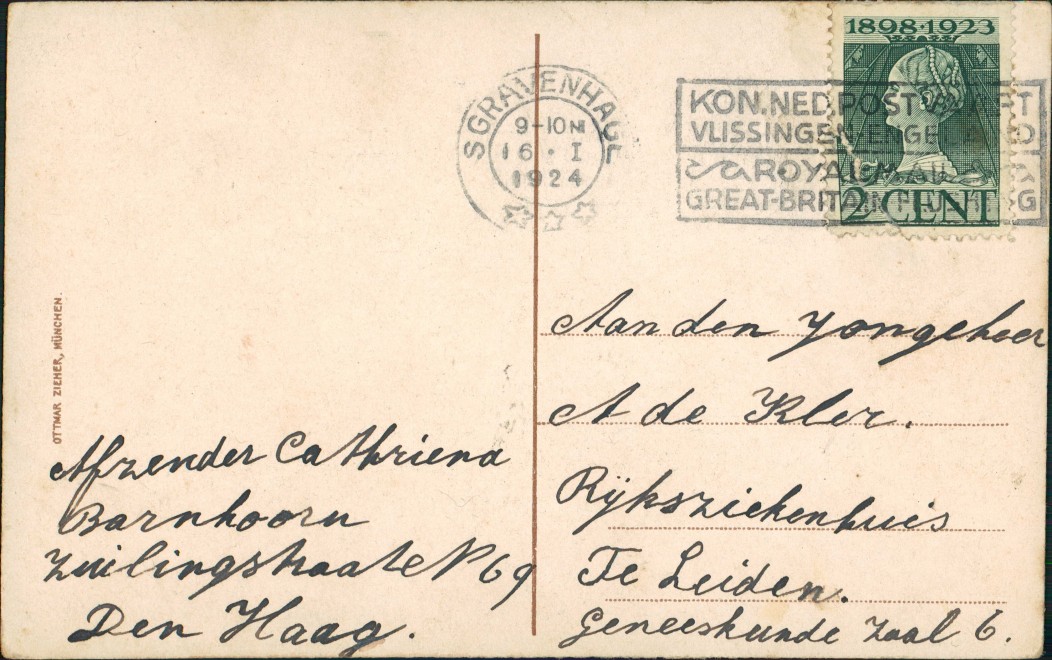 1898·1923
2 CENT
'SGRAVENHAGE
9-10 N
16·I
1924
KON. NED. POST
VLISSINGEN-ENGELAND
ROYAL MAIL
GREAT-BRITAIN
OTTMAR ZIEHER, MÜNCHEN.
Aan den Yongeheer
A de Kler.
Rijksziekenhuis
Te Leiden.
Geneeskunde Zaal 6.
Afzender Cathriena
Barnhoorn
Zuilingstraate N 69
Den Haag.